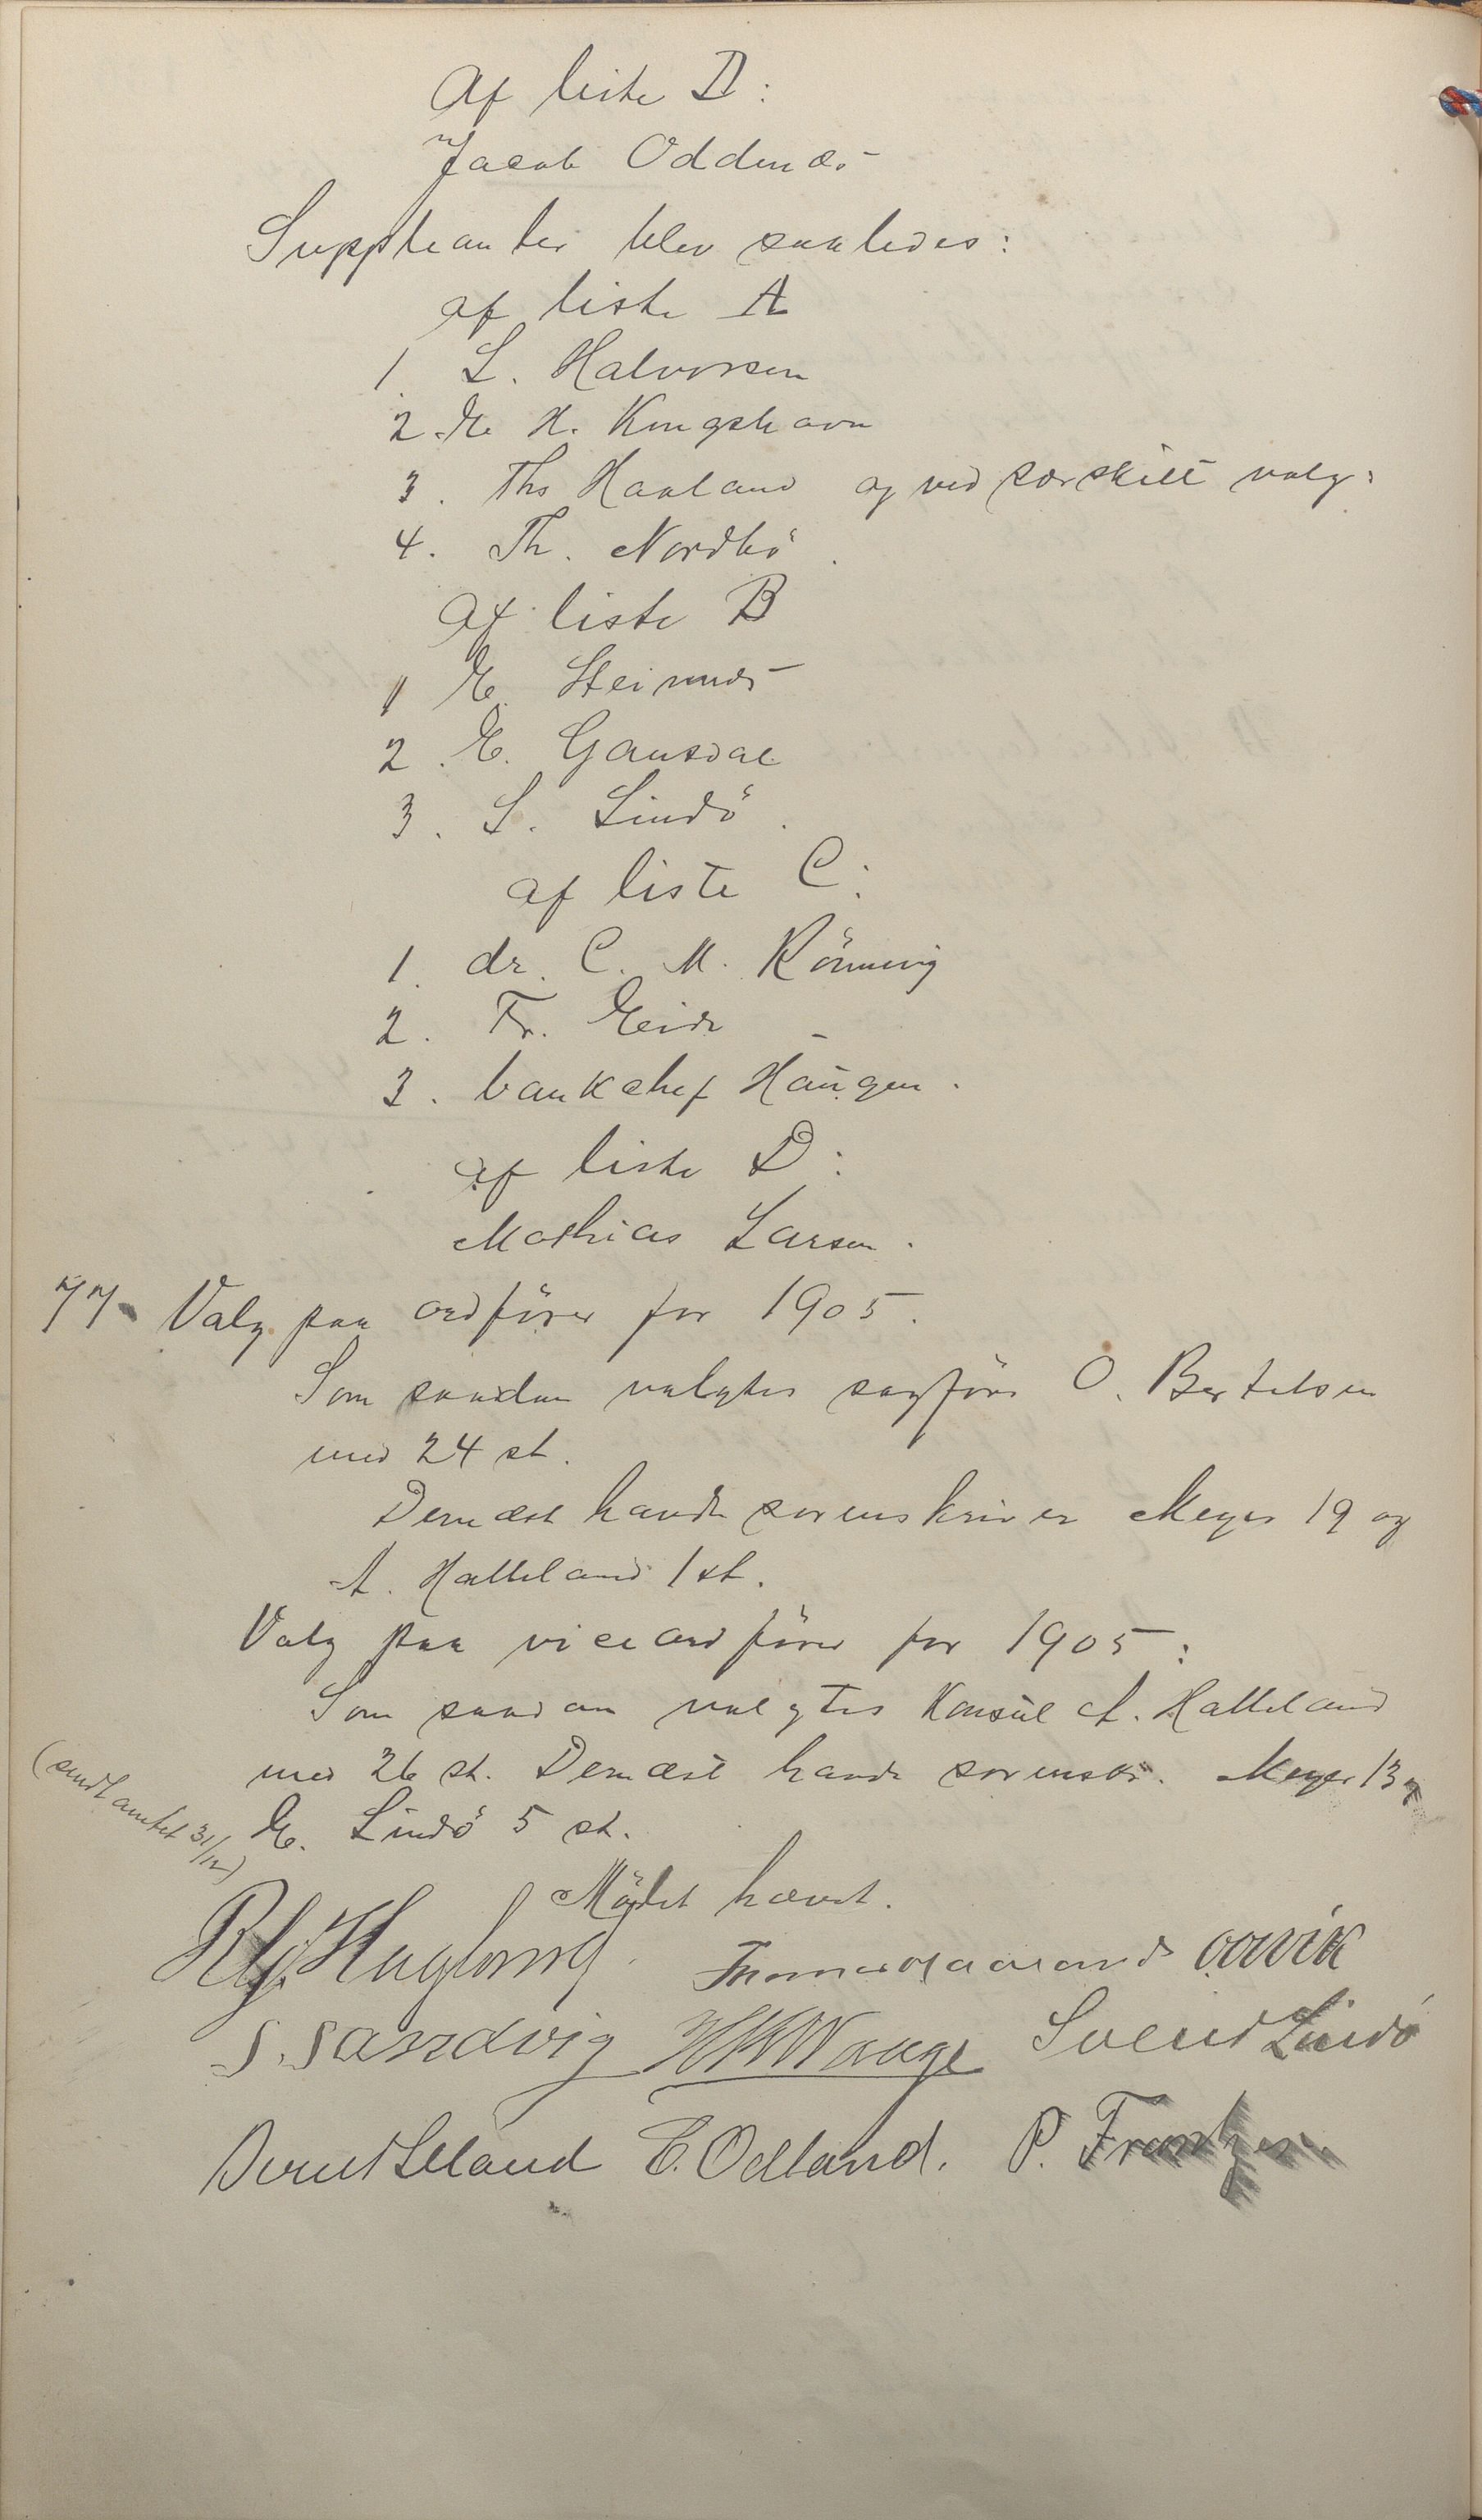 Af liste D:
Jacob Oddenæs
Suppleanter blev saaledes:
af liste A
1. L. Halvorsen
2. E. H. Kongshavn
3. Ths Haaland og ved særskilt valg:
4. Th. Nordbö.
Af liste B
1 E. Steinnes
2. E. Gausdal
3. S. Lindö.
af liste C:
1. dr. C. M. Rönnevig
2. Fr. Eide
3. bankchef Haugen.
af liste D:
Mathias Larsen.
77. Valg paa ordförer for 1905.
Som saadan valgtes sagförer O. Bertelsen
med 24 st.
Dernæst havde sorenskriver Meyer 19 og
A. Hatteland 1 st.
Valg paa viceordförer for 1905:
Som saadan valgtes Konsul A. Hatteland
med 26 st. Dernæst havde sorenskr. Meyer 13 og
E. Lindö 5 st.
(sendt amtet 31/12)
Mödet hævet.
Thomas Haaland
S. Sandvig Svend Lindö
Bernt Leland E. Odland. P. Frantzen